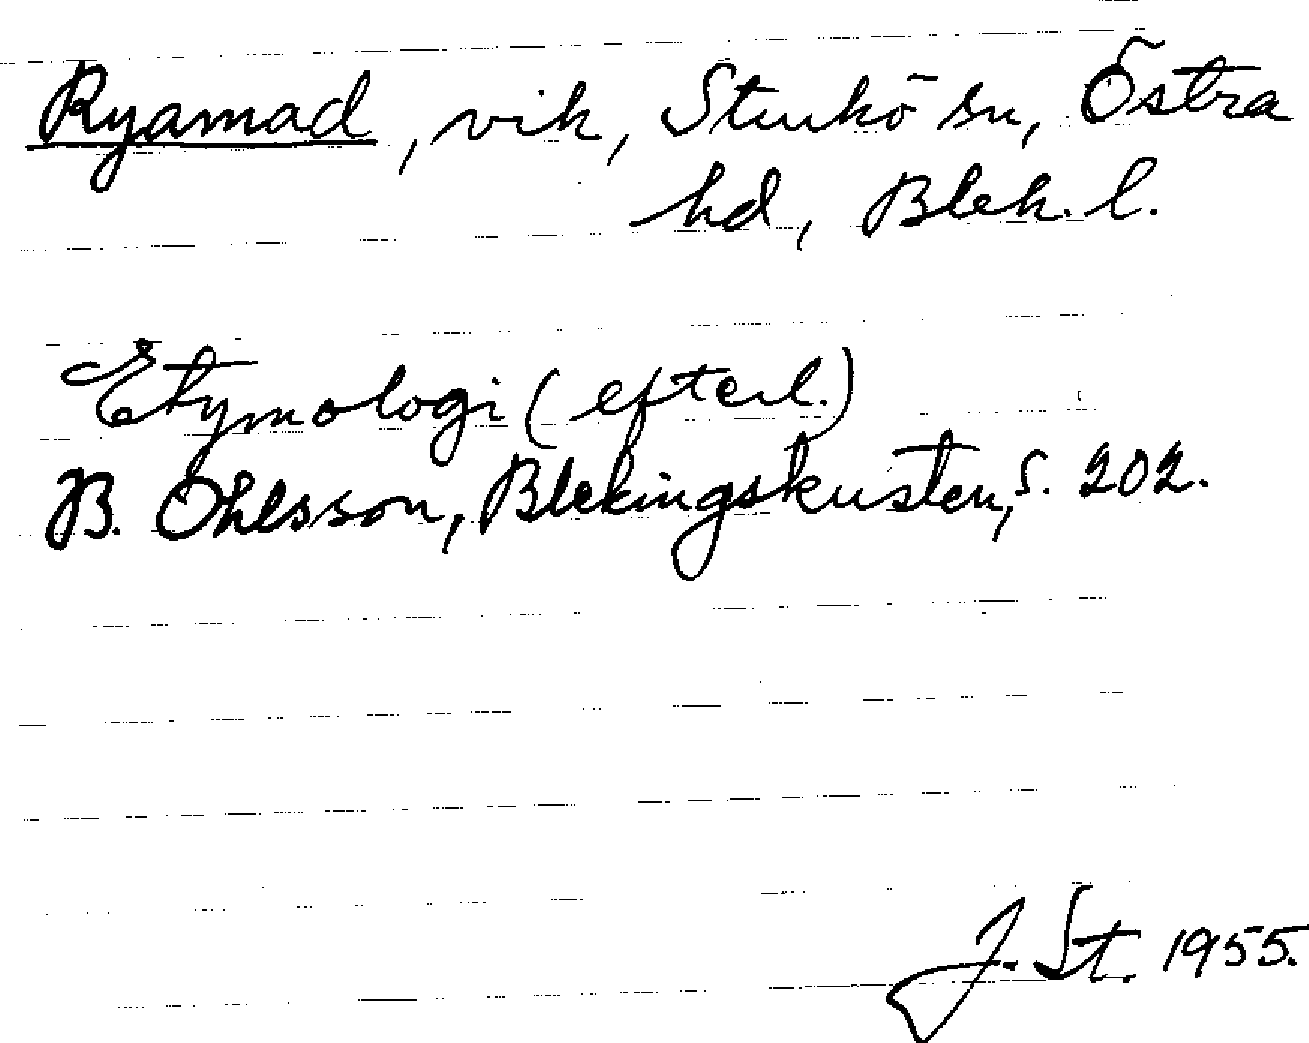 Ryamad, vik, Sturkö sn, Östra
hd, Blek. l.
Etymologi (efterl.)
B. Ohlsson, Blekingskusten, s. 202.
J. St. 1955.